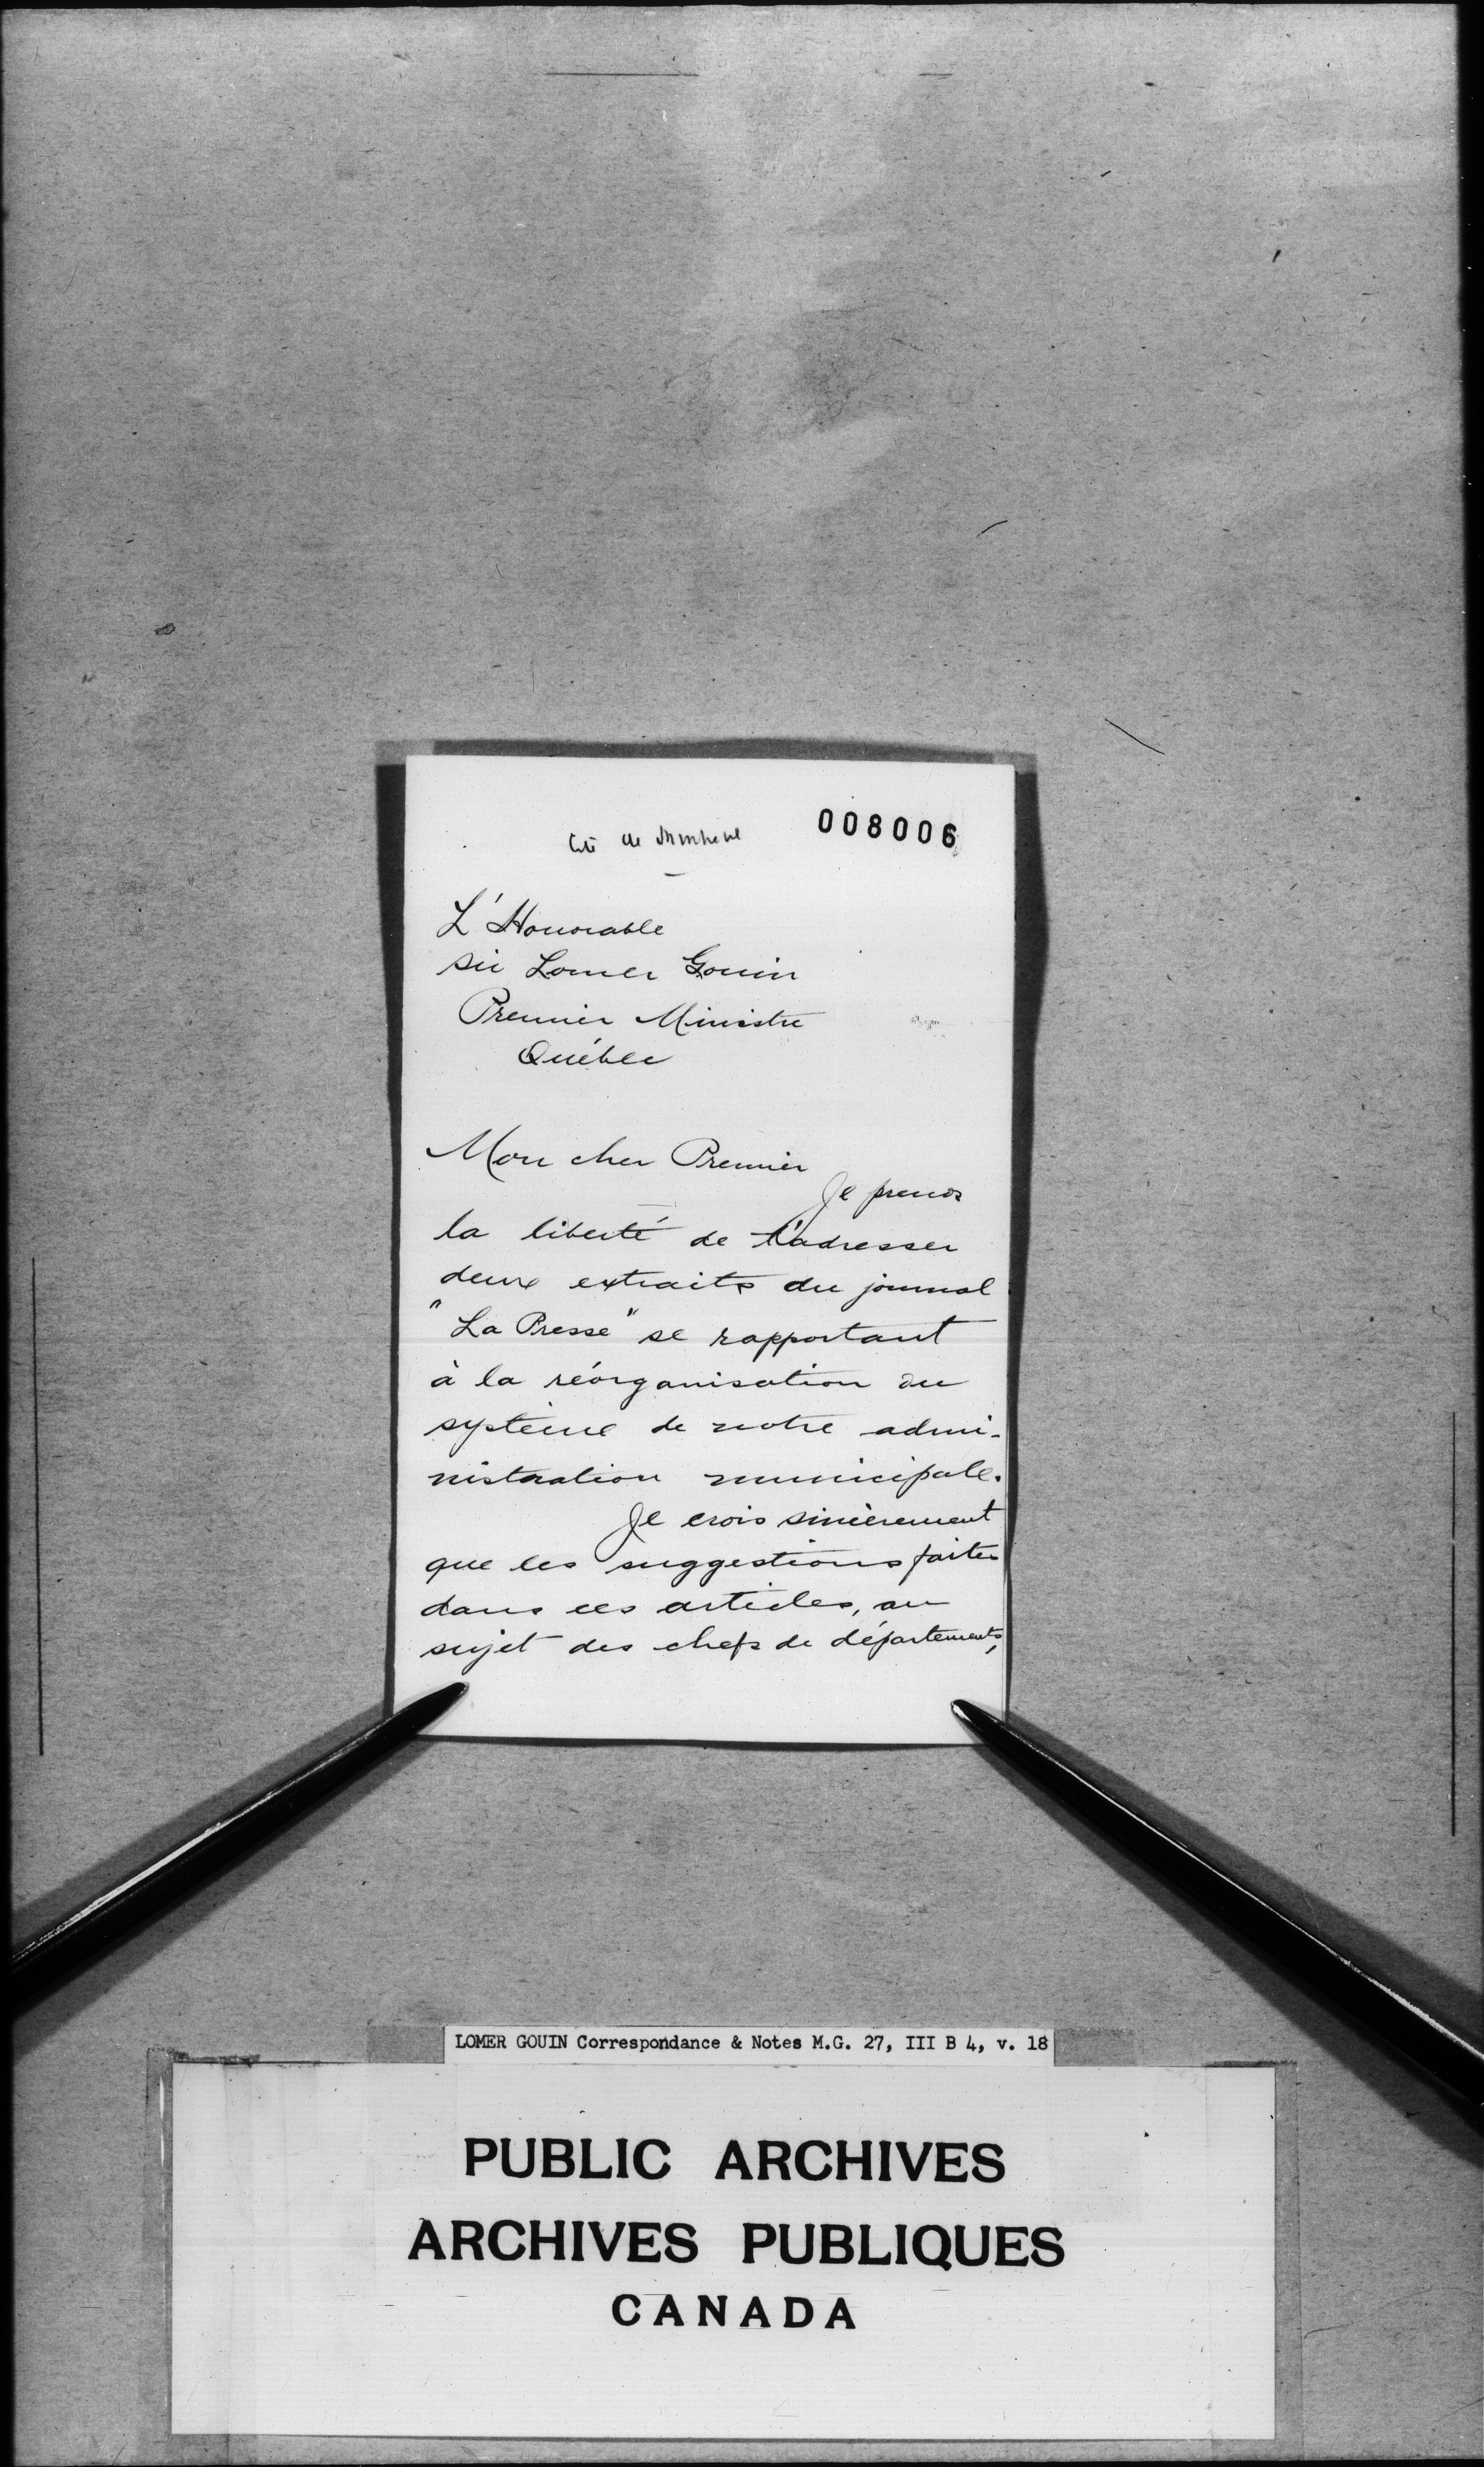 008006
Cité de Montréal
L'Honorable
Sir Lomer Gouin
Premier Ministre
Québec
Mon cher Premier
Je prends
la liberté de t'adresser
deux extraits du journal
"La Presse" se rapportant
à la réorganisation du
système de notre admi-
nistration municipale.
Je crois sincèrement
que les suggestions faites
dans ces articles, au
sujet des chefs de départements,
LOMER GOUIN Correspondance & Notes M.G. 27, III B 4, v. 18
PUBLIC ARCHIVES
ARCHIVES PUBLIQUES
CANADA